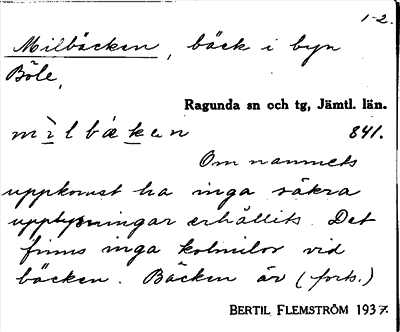 1-2.
Milbäcken, bäck i byn
Böle,
Ragunda sn och tg, Jämtl. län.
mìlbäken 841.
Om namnets
uppkomst ha inga säkra
upplysningar erhållits. Det
finns inga kolmilor vid
bäcken. Bäcken är (forts.)
BERTIL FLEMSTRÖM 1937.